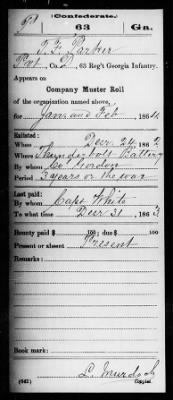 Confederate.
P 63 Ga.
T. F. Parker
Pvt, Co. D, 63 Reg't Georgia Infantry.
Appears on
Company Muster Roll
of the organization named above,
for Jan and Feb, 1864.
Enlisted:
When Decr 24, 186
Where Thunderbolt Battery
By whom Col Gordon
Period 3 years or the war
Last paid:
By whom Capt White
To what time Decr 31, 1863.
Bounty paid $ 100; due $ 100
Present or absent Present
Remarks:
Book mark:
L. Murdoch
(642) Copyist.